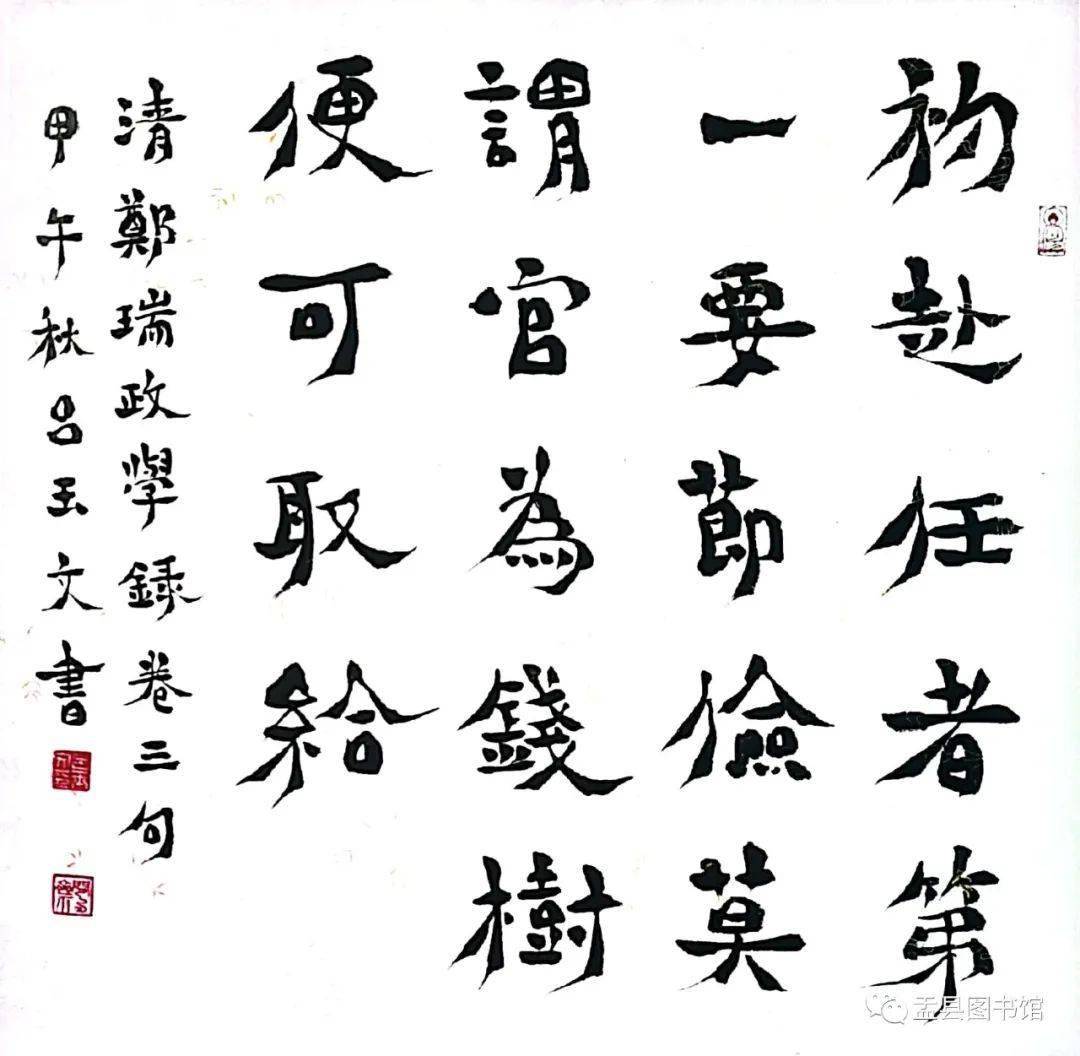 初赴任者第
一要節儉莫
謂官為錢樹
便可取給
清鄭瑞政學録卷三句
甲午秋呂玉文書
盂县图书馆